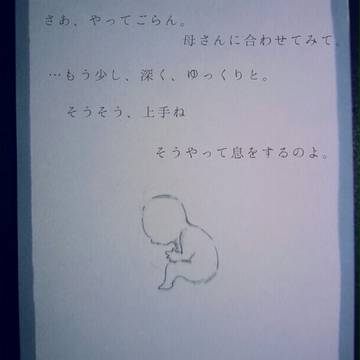 さあ、やってごらん。
母さんに合わせてみて。
…もう少し、深く、ゆっくりと。
そうそう、上手ね
そうやって息をするのよ。